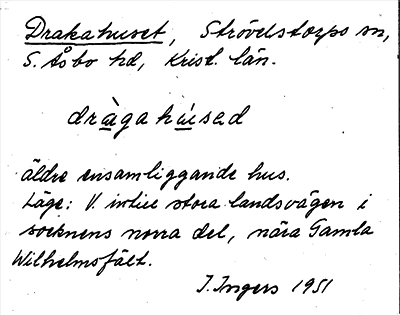 Drakahuset, Strövelstorps sn,
S. Åsbo hd, Krist. län.
dràgahúsəd
äldre ensamliggande hus.
Läge: V. intill stora landsvägen i
socknens norra del, nära Gamla
Wilhelmsfält.
I. Ingers 1951